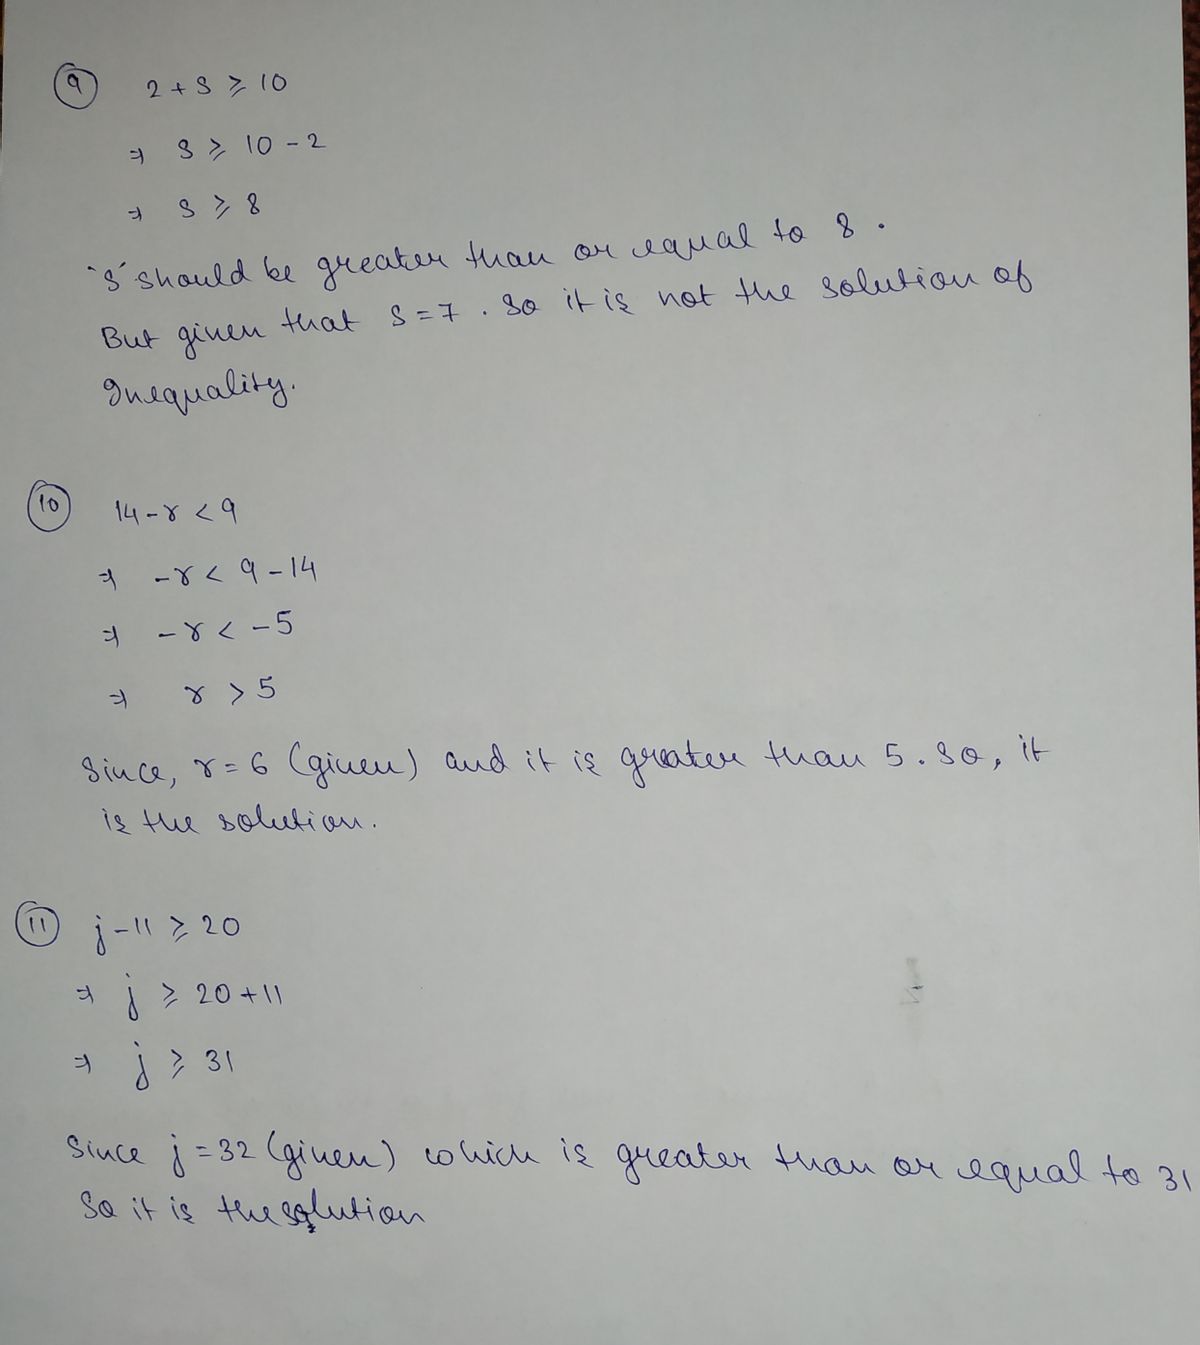 9 2 + s ≥ 10
⇒ s ≥ 10 - 2
⇒ s ≥ 8
's' should be greater than or equal to 8.
But given that s = 7. So it is not the solution of
Inequality.
10 14 - r < 9
⇒ -r < 9 - 14
⇒ -r < -5
⇒ r > 5
Since, r = 6 (given) and it is greater than 5. So, it
is the solution.
11 j - 11 ≥ 20
⇒ j ≥ 20 + 11
⇒ j ≥ 31
Since j = 32 (given) which is greater than or equal to 31
So it is the solution